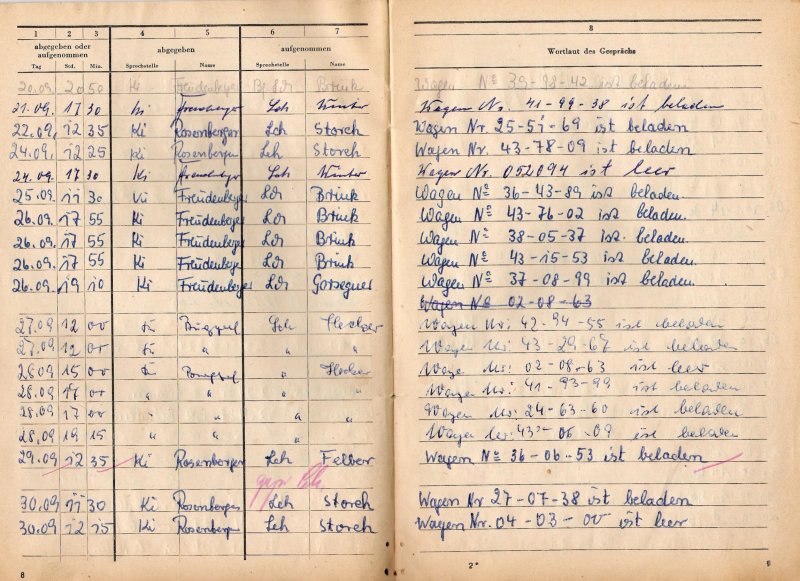 1 2 3 4 5 6 7 8
abgegeben oder aufgenommen abgegeben aufgenommen Wortlaut des Gesprächs
Tag Std. Min. Sprechstelle Name Sprechstelle Name
20.09. 20 50 Ki Brink Wagen No 39-98-42 ist beladen
21.09. 17 30 Ki Lch Winter Wagen Nr. 41-99-38 ist beladen
22.09. 12 35 Ki Rosenberger Lch Storch Wagen Nr. 25-51-69 ist beladen
24.09. 12 25 Ki Rosenberger Lch Storch Wagen Nr. 43-78-09 ist beladen
24.09. 17 30 Ki Lch Winter Wagen Nr. 052094 ist leer
25.09. 11 30 Ki Freudenberger Lch Brink Wagen No 36-43-89 ist beladen.
26.09. 17 55 Ki Freudenberger Lch Brink Wagen No 43-76-02 ist beladen.
26.09. 17 55 Ki Freudenberger Lch Brink Wagen No 38-05-37 ist beladen.
26.09. 17 55 Ki Freudenberger Lch Brink Wagen No 43-15-53 ist beladen
26.09. 19 10 Ki Freudenberger Lch Wagen No 37-08-99 ist beladen.
Wagen No 02-08-63
27.09 12 00 Lch Hecker Wagen Nr: 42-94-55 ist beladen
27.09 12 00 " " " Wagen Nr: 43-29-67 ist beladen
15 00 Hecker Wagen Nr: 02-08-63 ist leer
28.09 17 00 " " " " Wagen Nr: 41-93-99 ist beladen
28.09 17 00 " " " " Wagen Nr: 24-63-60 ist beladen
28.09 19 15 " " " " Wagen Nr: 43-06-09 ist beladen
29.09 12 35 Ki Rosenberger Lch Felber Wagen No 36-06-53 ist beladen
30.09 11 30 Ki Rosenberger Lch Storch Wagen Nr 27-07-38 ist beladen
30.09 12 15 Ki Rosenberger Lch Storch Wagen Nr. 04-03-00 ist leer
8 2* 9